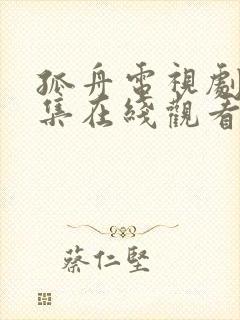 孤舟電視劇
集在綫觀看
蔡仁堅